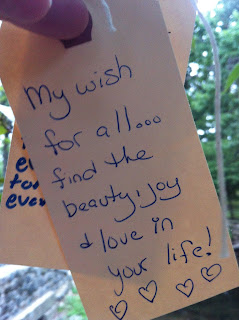 My wish
for all...
find the
beauty, joy
& love in
your life!